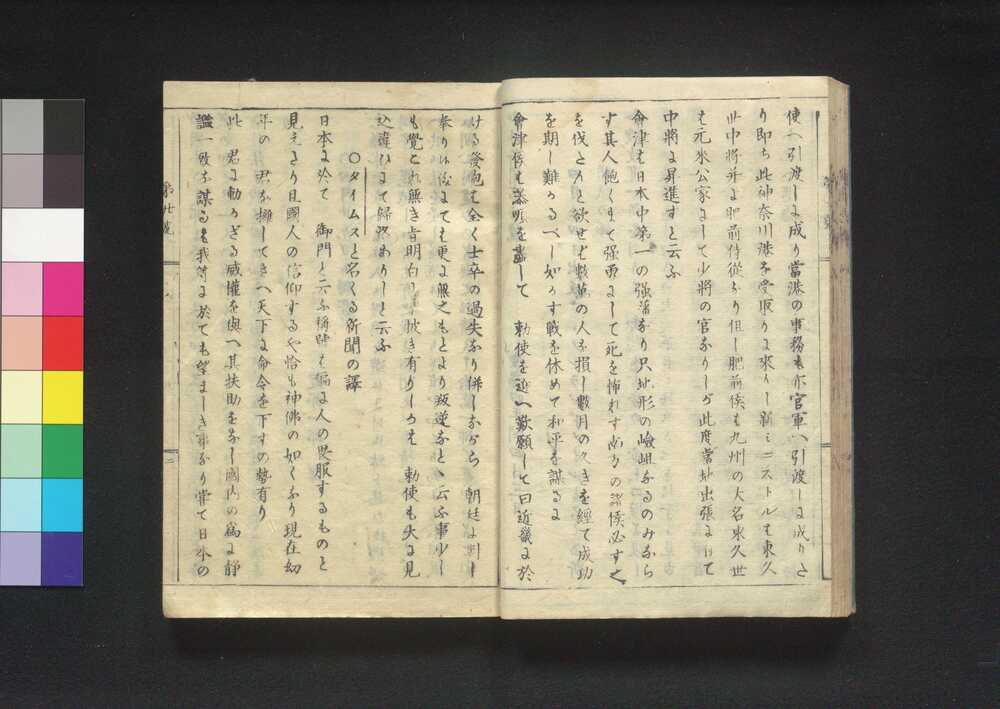 使へ引渡しに成り當港の事務も亦官軍へ引渡しに成りた
り即ち此神奈川港を受取りに來りし新ミニストルは東久
世中將并に肥前侍從なり但し肥前侯も九州の大名東久世
は元來公家にして少將の官なりしが此度當地出張に付て
中將に昇進すと云ふ
會津は日本中第一の强藩なり只地形の嶮岨なるのみなら
す其人飽くまて强勇にして死を怖れす南方の諸侯必す之
を伐とんと欲せば數萬の人を損し數月の久きを經て成功
を期し難かるべし如かす戰を休めて和平を謀るに
會津侯も を盡して 勅使を迎へ歎願して曰近畿に於
ける發砲は全く士卒の過失なり併しながら 朝廷に對し
奉り候ては更に無之もとより叛逆などゝ云ふ事少し
も覺これ無き旨明白に申披き有りしかは 勅使も大に見
込違ひにて歸路ありしと云ふ
〇タイムスと名くる新聞の譯
日本に於て 御門と云ふ稱號は偏に人の畏服するものと
見えたり且國人の信仰するや恰も神佛の如くなり現在幼
年の 君を擁してさへ天下に命令を下すの勢有り
此 君に動かざる威權を與へ其扶助をなし國内の爲に靜
謐一致を謀るは我等に於ても望ましき事なり嘗て日本の
第廿號